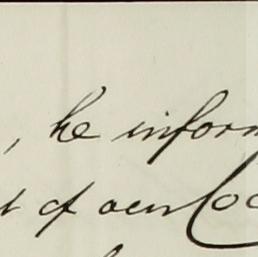 , he inform
t of our Co